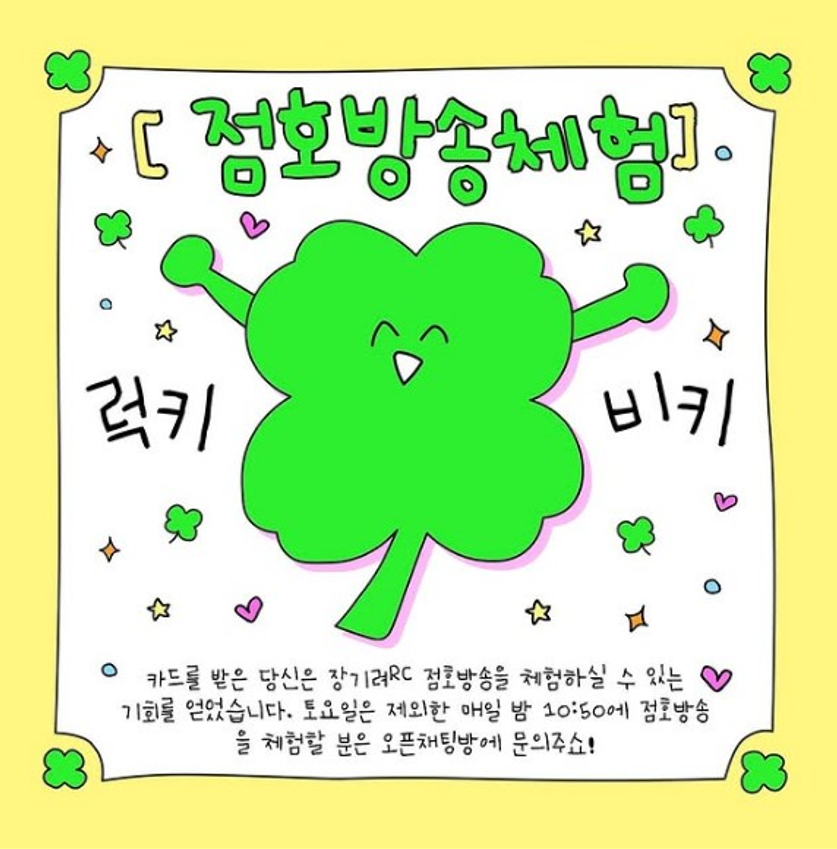 [점호방송체험]
럭키 비키
카드를 받은 당신은 장기려RC 점호방송을 체험하실 수 있는
기회를 얻었습니다. 토요일은 제외한 매일 밤 10:50에 점호방송
을 체험할 분은 오픈채팅방에 문의주쇼!